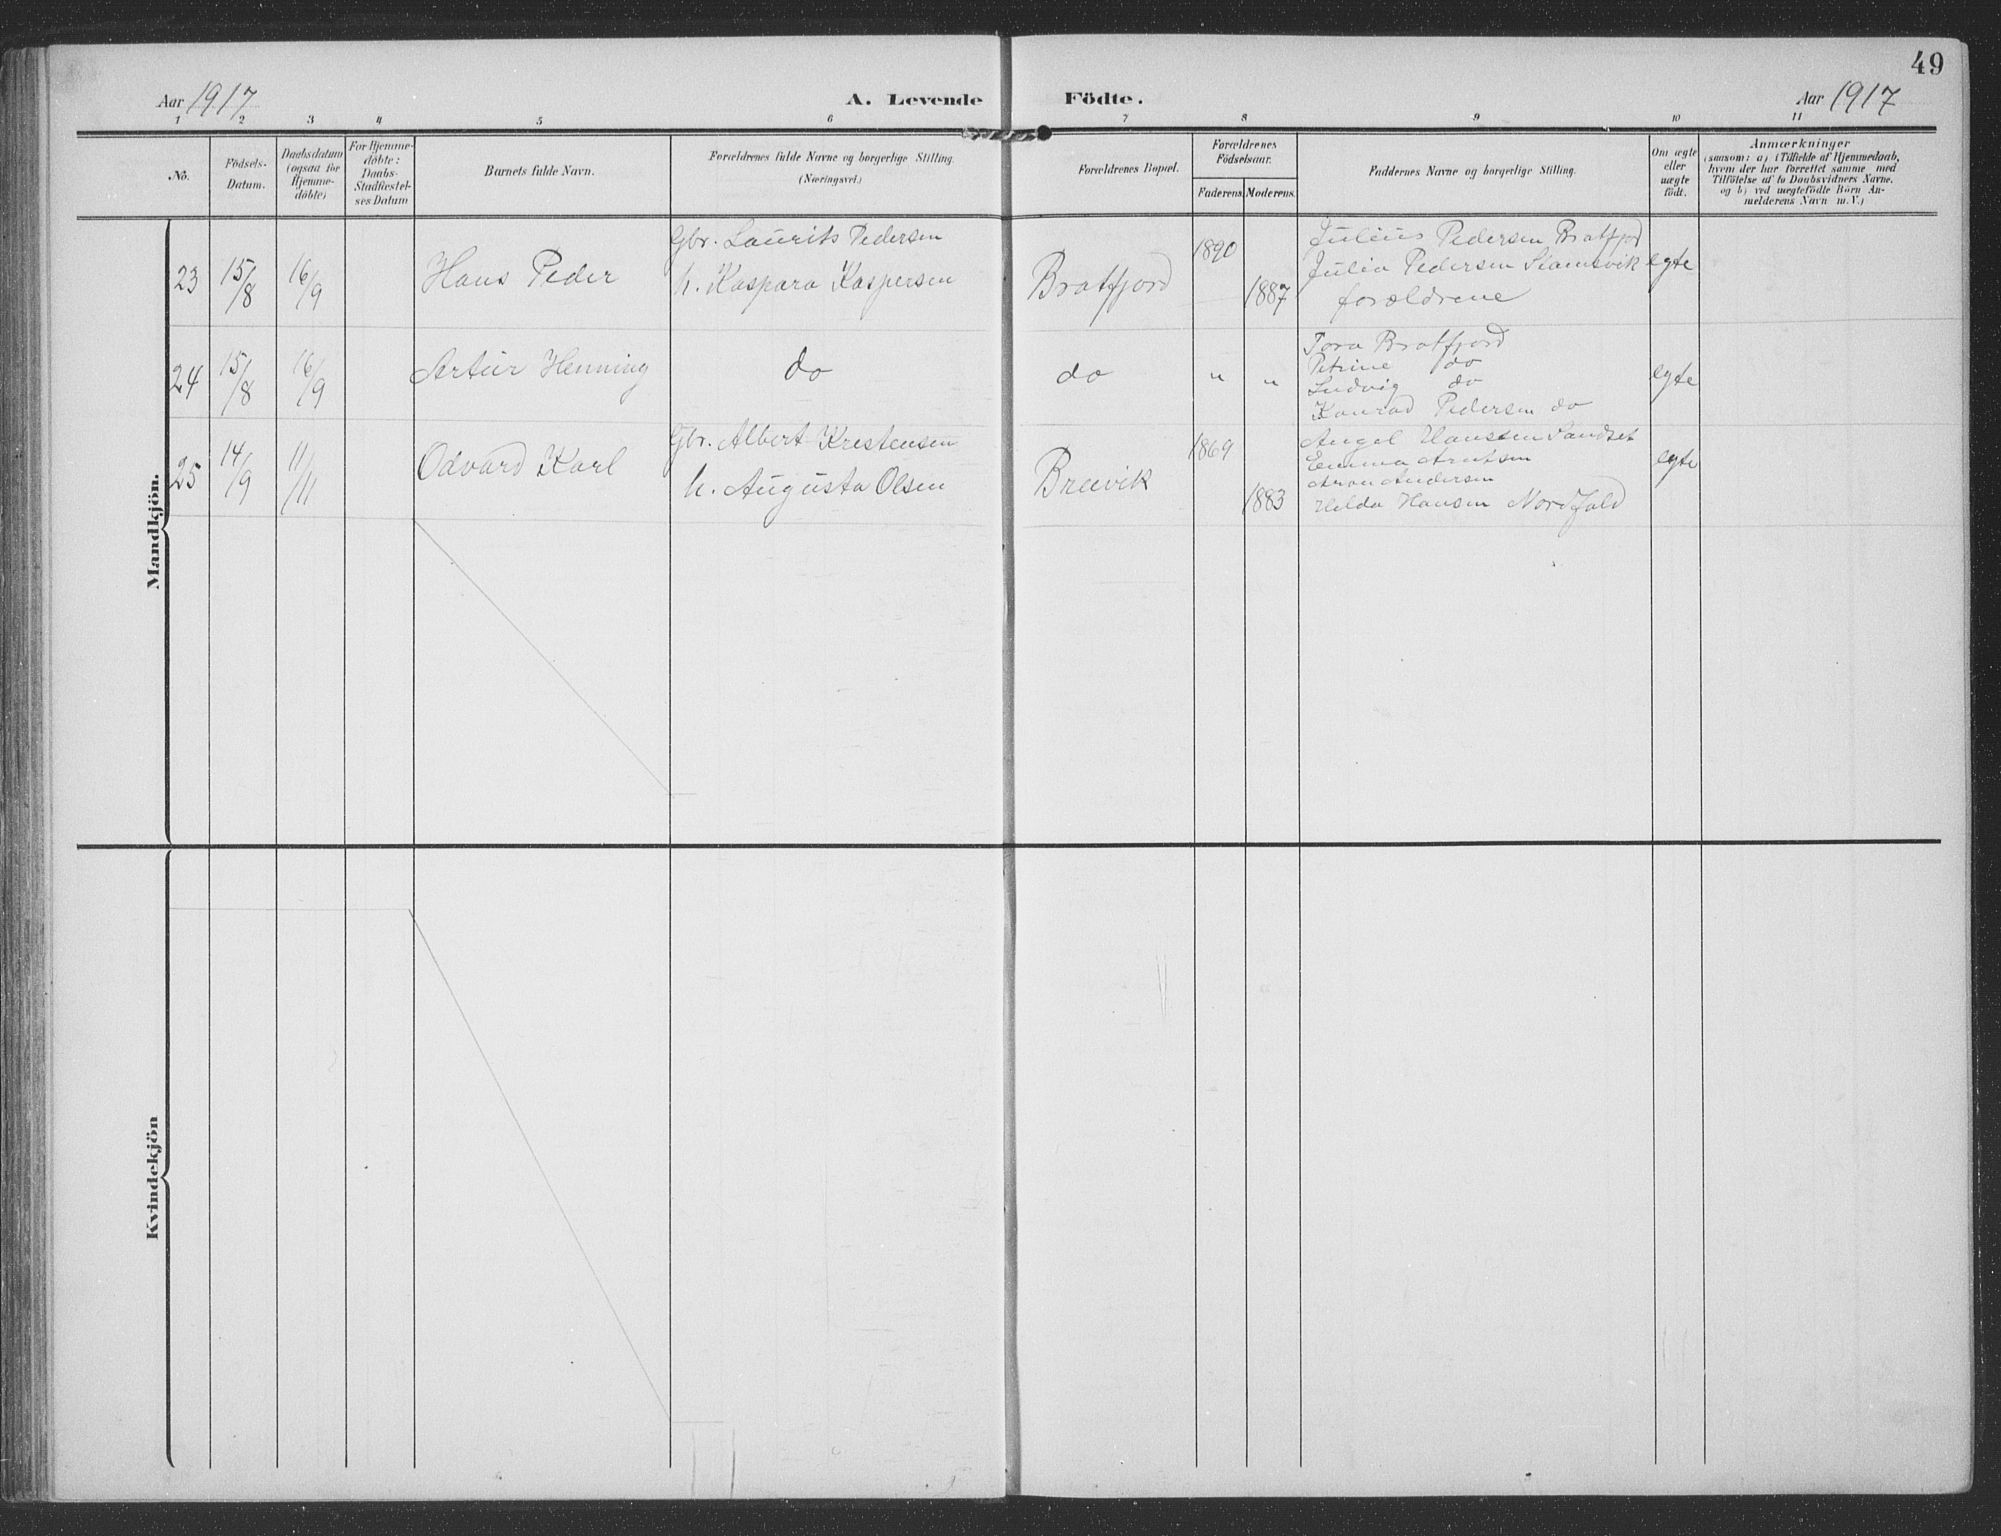 49
Aar 1917
A. Levende Födte.
Aar 1917
1 2 3 4 5 6 7 8 9 10 11
No.
Födsels-
Datum.
Daabsdatum
(ogsaa for
Hjemme-
döbte)
For Hjemme-
döbte:
Daabs-
Stadfæstel-
ses Datum
Barnets fulde Navn.
Forældrenes fulde Navne og borgerlige Stilling.
(Næringsvei.)
Forældrenes Bopæl.
Forældrenes
Födselsaar.
Faderens. Moderens.
Faddernes Navne og borgerlige Stilling.
Om ægte
eller
uægte
födt.
Anmærkninger
(saasom: a) i Tilfælde af Hjemmedaab,
hvem der har forrettet samme med
Tilföielse af to Daabsvidners Navne,
og b) ved uægtefödte Börn An-
melderens Navn m. V.)
Mandkjön.
23 15/8 16/9 Hans Peder
Gbr. Laurits Pedersen
h. Kaspara Kaspersen
Bratfjord 1890 1887
Julius Pedersen Bratfjord
Julia Pedersen
forældrene
egte
24 15/8 16/9 Artur Henning do do " "
Tora Bratfjord
Petrine do
Ludvig do
Konrad Pedersen do
egte
25 14/9 11/11 Odvard Karl
Gbr. Albert Kristensen
h. Augusta Olsen
Breivik 1869 1883
Angel Hanssen Sandset
Emma Arntsen
Aron Andersen
Hilda Hansen Nordfold
egte
Kvindekjön